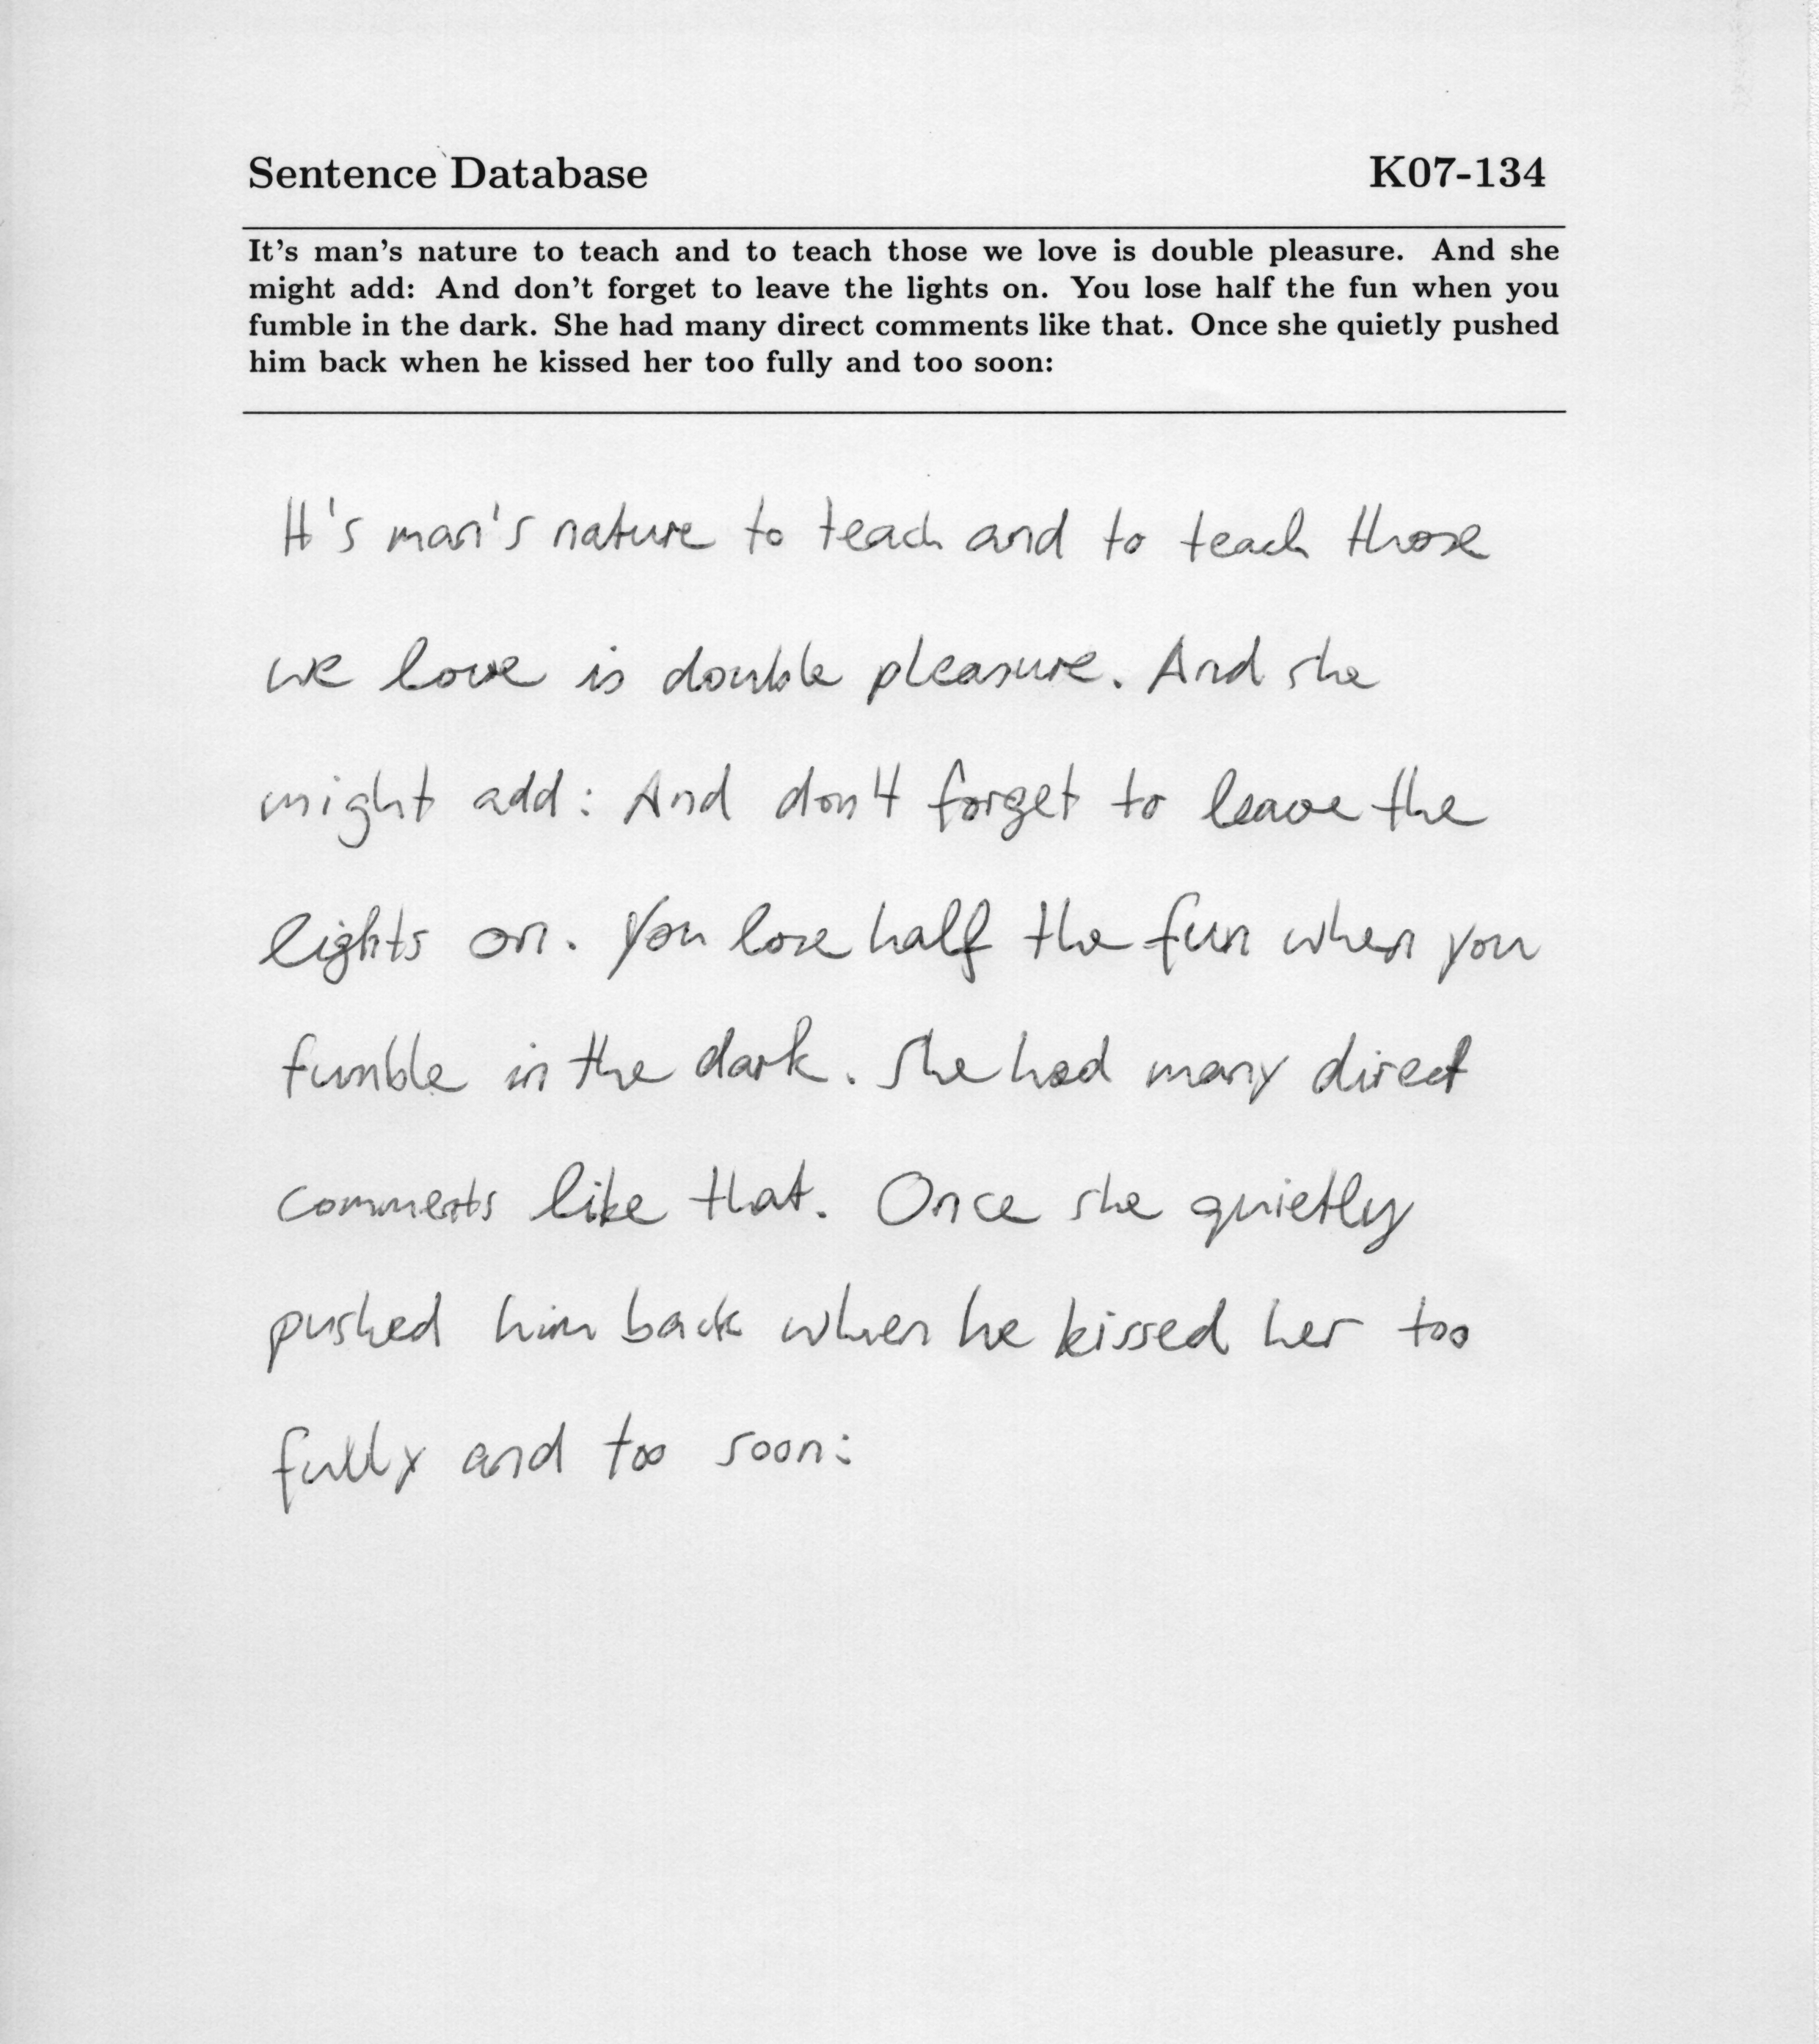 Sentence Database K07-134
It's man's nature to teach and to teach those we love is double pleasure. And she
might add: And don't forget to leave the lights on. You lose half the fun when you
fumble in the dark. She had many direct comments like that. Once she quietly pushed
him back when he kissed her too fully and too soon:
It's man's nature to teach and to teach those
we love is double pleasure. And she
might add: And don't forget to leave the
lights on. You lose half the fun when you
fumble in the dark. She had many direct
comments like that. Once she quietly
pushed him back when he kissed her too
fully and too soon: